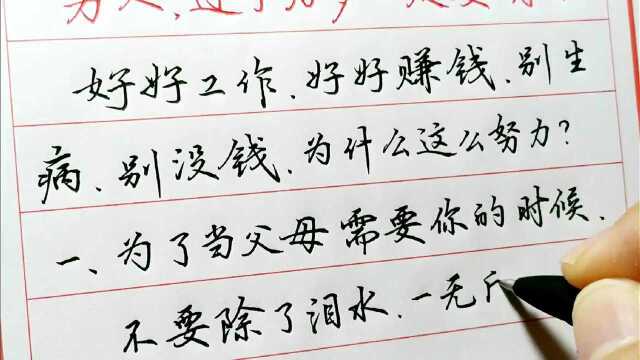 好好工作、好好赚钱、别生
病、别没钱、为什么这么努力?
一、为了当父母需要你的时候、
不要除了泪水、一无